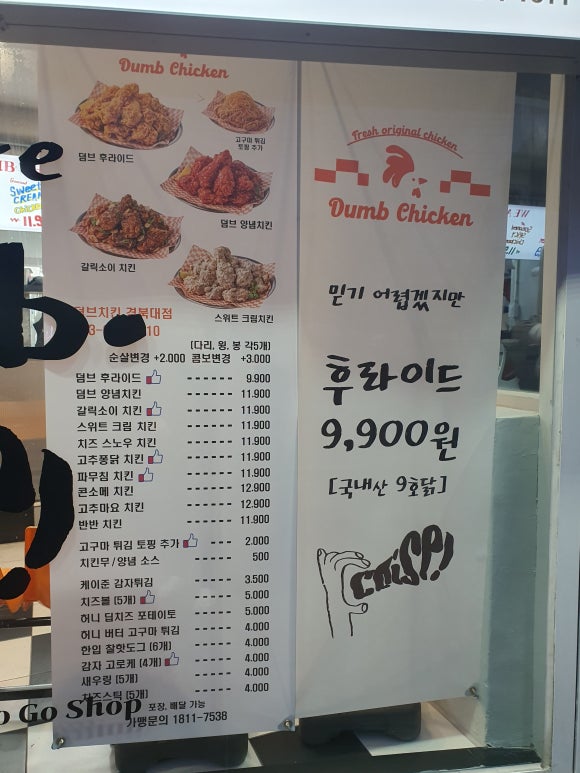 Dumb Chicken
덤브 후라이드
고구마 튀김
토핑 추가
덤브 양념치킨
갈릭소이 치킨
스위트 크림치킨
덤브치킨 경북대점
(다리, 윙, 봉 각5개)
순살변경 +2.000 콤보변경 +3.000
덤브 후라이드 ------ 9.900
덤브 양념치킨 ------ 11.900
갈릭소이 치킨 ------ 11.900
스위트 크림 치킨 ------ 11.900
치즈 스노우 치킨 ------ 11.900
고추퐁닭 치킨 ------ 11.900
파무침 치킨 ------ 11.900
콘소메 치킨 ------ 12.900
고추마요 치킨 ------ 12.900
반반 치킨 ------ 11.900
고구마 튀김 토핑 추가 -- 2.000
치킨무/양념 소스 ---- 500
케이준 감자튀김 ---- 3.500
치즈볼 (5개) ---- 5.000
허니 딥치즈 포테이토 ---- 5.000
허니 버터 고구마 튀김 ---- 4.000
한입 찰핫도그 (6개) ---- 4.000
감자 고로케 (4개) ---- 4.000
새우링 (5개) ---- 4.000
치즈스틱 (5개) ---- 4.000
포장, 배달 가능
가맹문의 1811-7538
Go Shop
Fresh original chicken
Dumb Chicken
믿기 어렵겠지만
후라이드
9,900원
[국내산 9호닭]
CRISP!